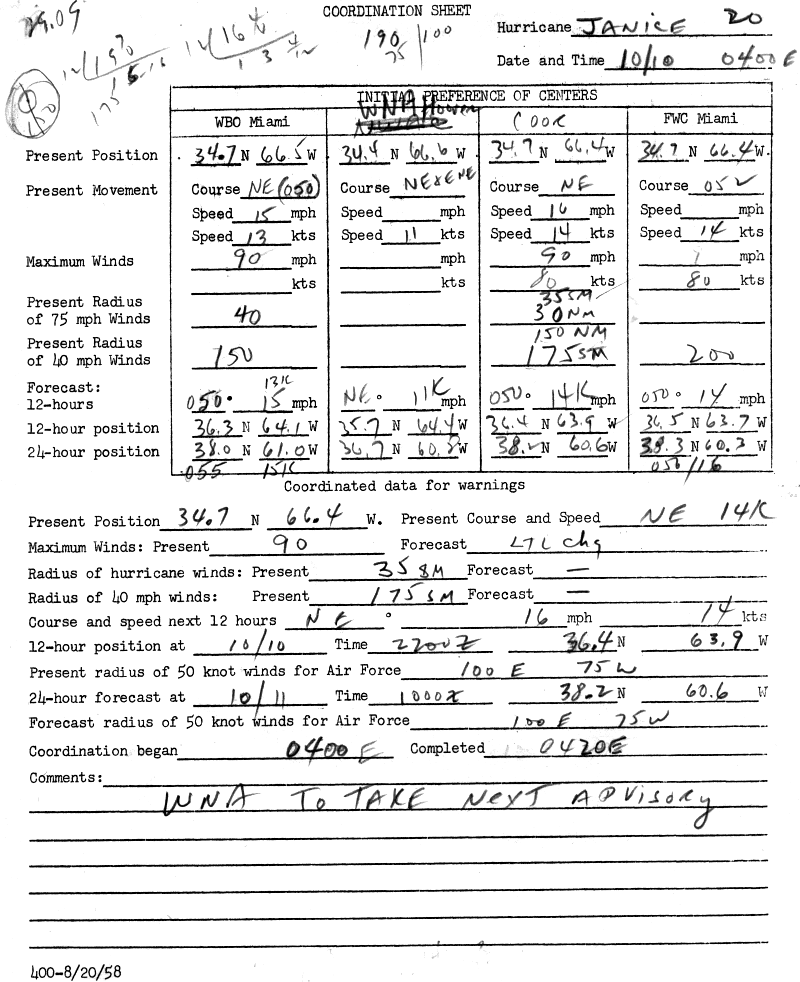 39.09
COORDINATION SHEET
Hurricane JANICE 20
190 / 100
75
Date and Time 10/10 0400 E
INITIAL PREFERENCE OF CENTERS
WBO Miami WNA COOR FWC Miami
Present Position 34.7 N 66.5 W 34.4 N 66.6 W 34.7 N 66.4 W 34.7 N 66.4 W.
Present Movement Course NE (050) Course NE Course NE Course 05
Speed 15 mph Speed mph Speed 16 mph Speed mph
Speed 13 kts Speed 11 kts Speed 14 kts Speed 14 kts
Maximum Winds 90 mph mph 90 mph mph
kts kts 80 kts 80 kts
Present Radius 35SM
of 75 mph Winds 40 30 NM
Present Radius 150 NM
of 40 mph Winds 150 175 SM 200
Forecast: 13K
12-hours 050° 15 mph NE ° 11K mph 050° 14K mph 050 ° 14 mph
12-hour position 36.3 N 64.1 W 35.7 N 64.4 W 36.4 N 63.9 W 36.5 N 63.7 W
24-hour position 38.0 N 61.0 W 36.7 N 60.8 W 38.2 N 60.6 W 38.3 N 60.3 W
055 15K 050/16
Coordinated data for warnings
Present Position 34.7 N 66.4 W. Present Course and Speed NE 14K
Maximum Winds: Present 90 Forecast LTL chg
Radius of hurricane winds: Present 35 SM Forecast —
Radius of 40 mph winds: Present 175 SM Forecast —
Course and speed next 12 hours NE ° 16 mph 14 kts
12-hour position at 10/10 Time 2200Z 36.4 N 63.9 W
Present radius of 50 knot winds for Air Force 100 E 75 W
24-hour forecast at 10/11 Time 1000Z 38.2 N 60.6 W
Forecast radius of 50 knot winds for Air Force 100 E 75 W
Coordination began 0400 E Completed 0420E
Comments:
WNA TO TAKE NEXT ADVISORY
400-8/20/58